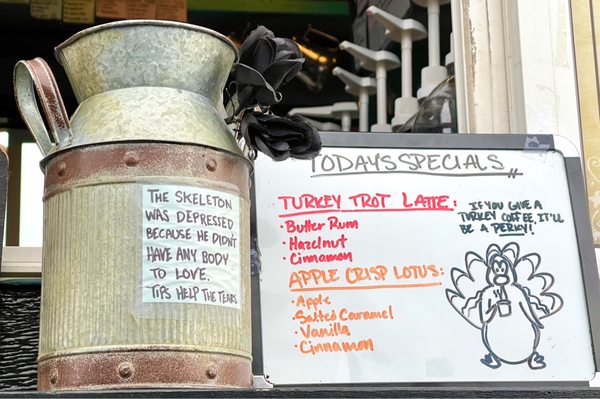 THE SKELETON
WAS DEPRESSED
BECAUSE HE DIDN'T
HAVE ANY BODY
TO LOVE.
TIPS HELP THE TEARS
TODAYS SPECIALS
TURKEY TROT LATTE:
• Butter Rum
• Hazelnut
• Cinnamon
IF YOU GIVE A
TURKEY COFFEE, IT'LL
BE A PERKY!
APPLE CRISP LOTUS:
• Apple
• Salted Caramel
• Vanilla
• Cinnamon